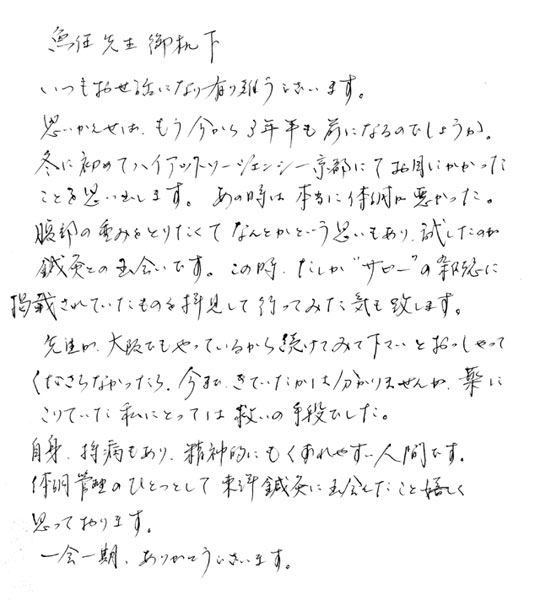 先生 御机下
いつもお世話になり有り難うございます。
思いかえせば、もう今から3年半も前になるのでしょうか。
冬に初めてハイアットリージェンシー京都にてお目にかかった
ことを思い出します。あの時は本当に体調が悪かった。
腹部の重みをとりたくてなんとかという思いもあり、試したのが
鍼灸との出会いです。この時、たしか“サロー”の雑誌に
掲載されていたものを拝見して行ってみた気も致します。
先生が、大阪でもやっているから続けてみて下さいとおっしゃって
くださらなかったら、今まできていたかは分かりませんが、薬に
こりていた私にとっては救いの手段でした。
自身、持病もあり、精神的にもくずれやすい人間です。
体調管理のひとつとして東洋鍼灸に出会えたこと嬉しく
思っております。
一会一期、ありがとうございます。